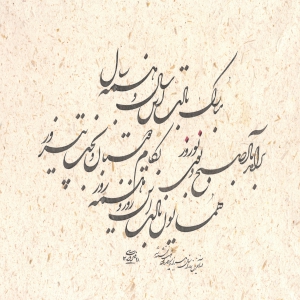 مبارک بادت این سال و همه سال
برآمد باد صبح و بوی نوروز
بکام دوستان و بخت پیروز
همایون بادت این روز و همه روز